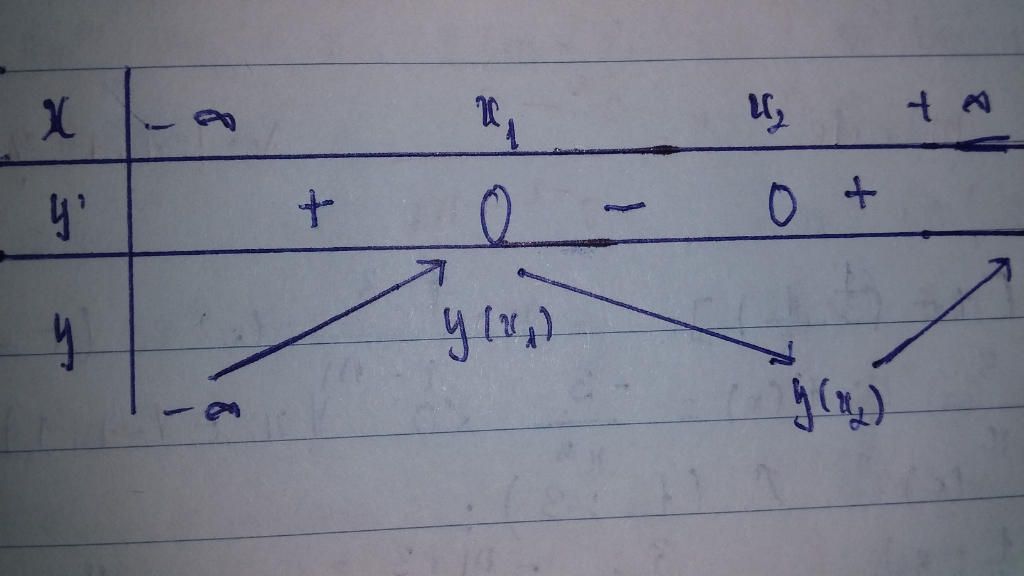 x -∞ x₁ x₂ +∞
y' + 0 - 0 +
y y(x₁)
-∞ y(x₂)